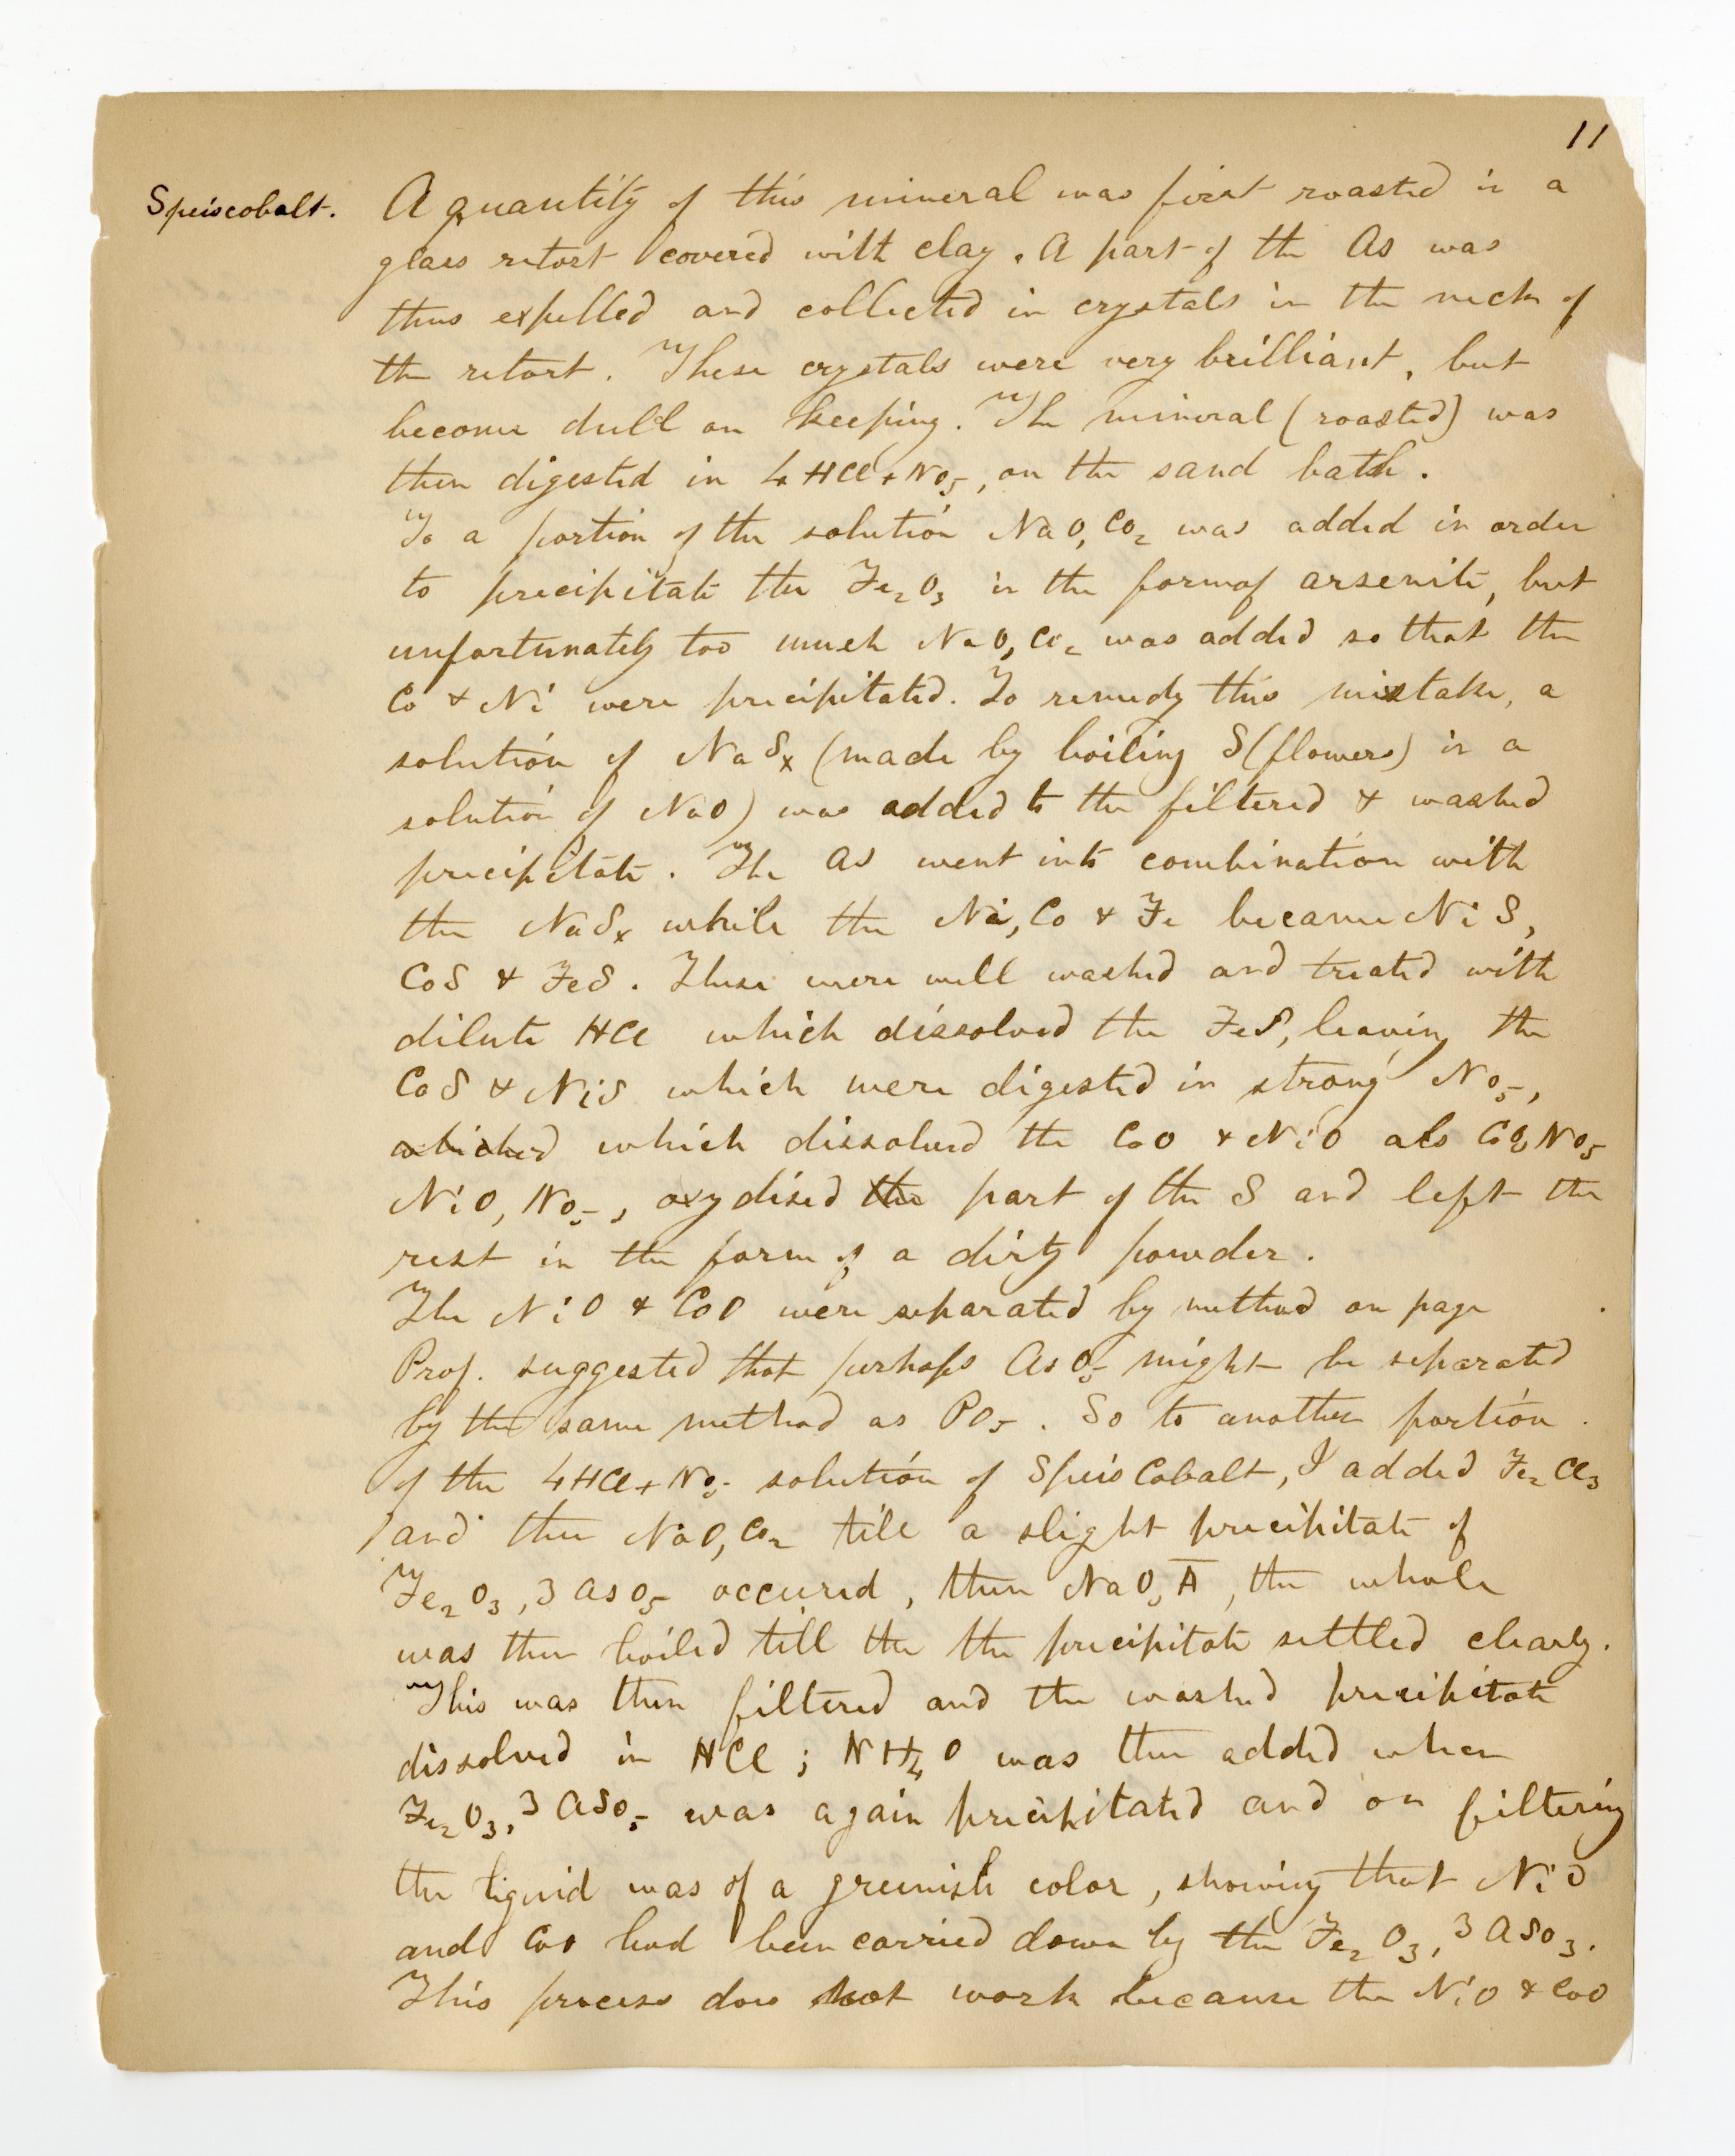 11
Speiscobalt. A quantity of this mineral was first roasted in a
glass retort covered with clay. A part of the As was
thus expelled and collected in crystals in the neck of
the retort. These crystals were very brilliant, but
become dull on keeping. The mineral (roasted) was
then digested in 4HCl + NO₅, on the sand bath.
To a portion of the solution NaO,CO₂ was added in order
to precipitate the Fe₂O₃ in the form of arsenite, but
unfortunately too much NaO,CO₂ was added so that the
Co & Ni were precipitated. To remedy this mistake, a
solution of NaSₓ (made by boiling S (flowers) in a
solution of NaO) was added to the filtered & washed
precipitate. The As went into combination with
the NaSₓ while the Ni, Co & Fe became NiS,
CoS & FeS. These were well washed and treated with
dilute HCl which dissolved the FeS, leaving the
CoS & NiS which were digested in strong NO₅,
which dissolved the CoO & NiO as CoO,NO₅
NiO, NO₅, oxydised the part of the S and left the
rest in the form of a dirty powder.
The NiO & CoO were separated by method on page
Prof. suggested that perhaps AsO₅ might be separated
by the same method as PO₅. So to another portion
of the 4HCl + NO₅ solution of Speis Cobalt, I added Fe₂Cl₃
and then NaO,CO₂ till a slight precipitate of
Fe₂O₃,3AsO₅ occured, then NaO,A̅, the whole
was then boiled till the the precipitate settled clearly.
This was then filtered and the washed precipitate
dissolved in HCl; NH₄O was then added when
Fe₂O₃,3AsO₅ was again precipitated and on filtering
the liquid was of a greenish color, showing that NiO
and CoO had been carried down by the Fe₂O₃,3AsO₃.
This process does not work because the NiO & CoO